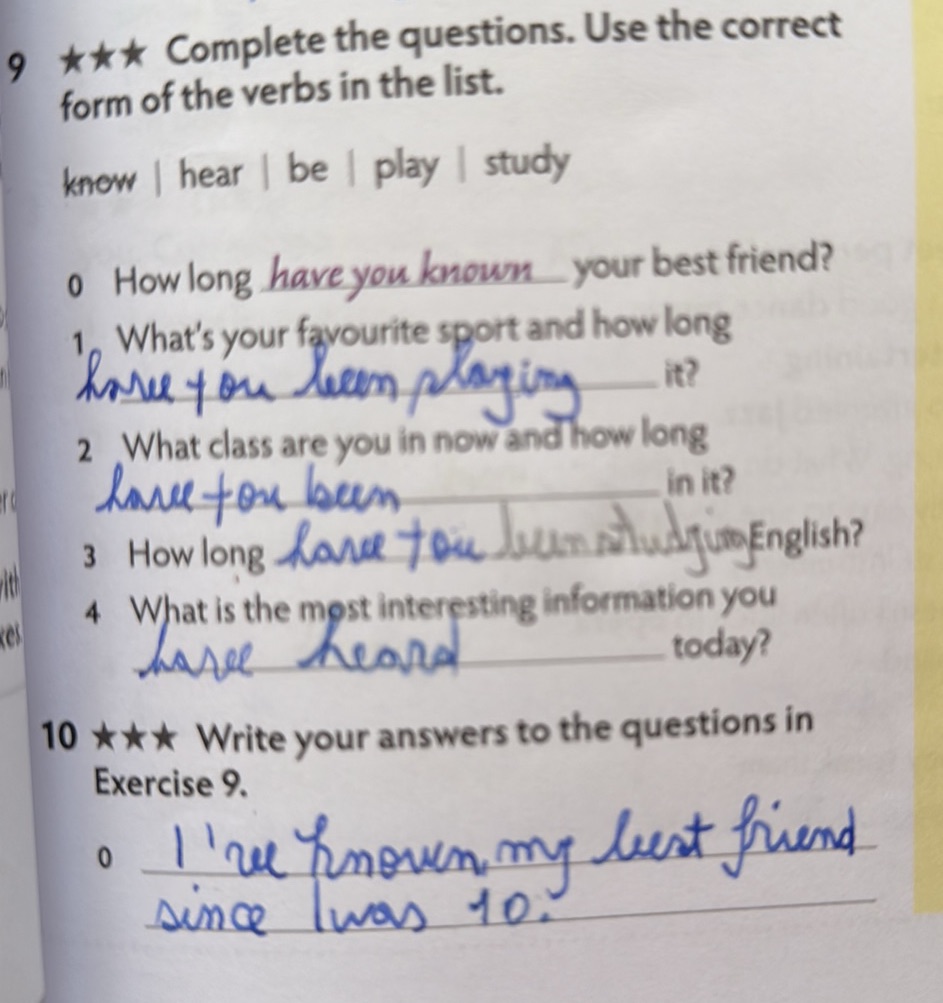 9 ★★★ Complete the questions. Use the correct
form of the verbs in the list.
know | hear | be | play | study
0 How long have you known your best friend?
1 What's your favourite sport and how long
have you been playing it?
2 What class are you in now and how long
have you been in it?
3 How long have you been studying English?
4 What is the most interesting information you
have heard today?
10 ★★★ Write your answers to the questions in
Exercise 9.
0 I've known my best friend
since I was 10.